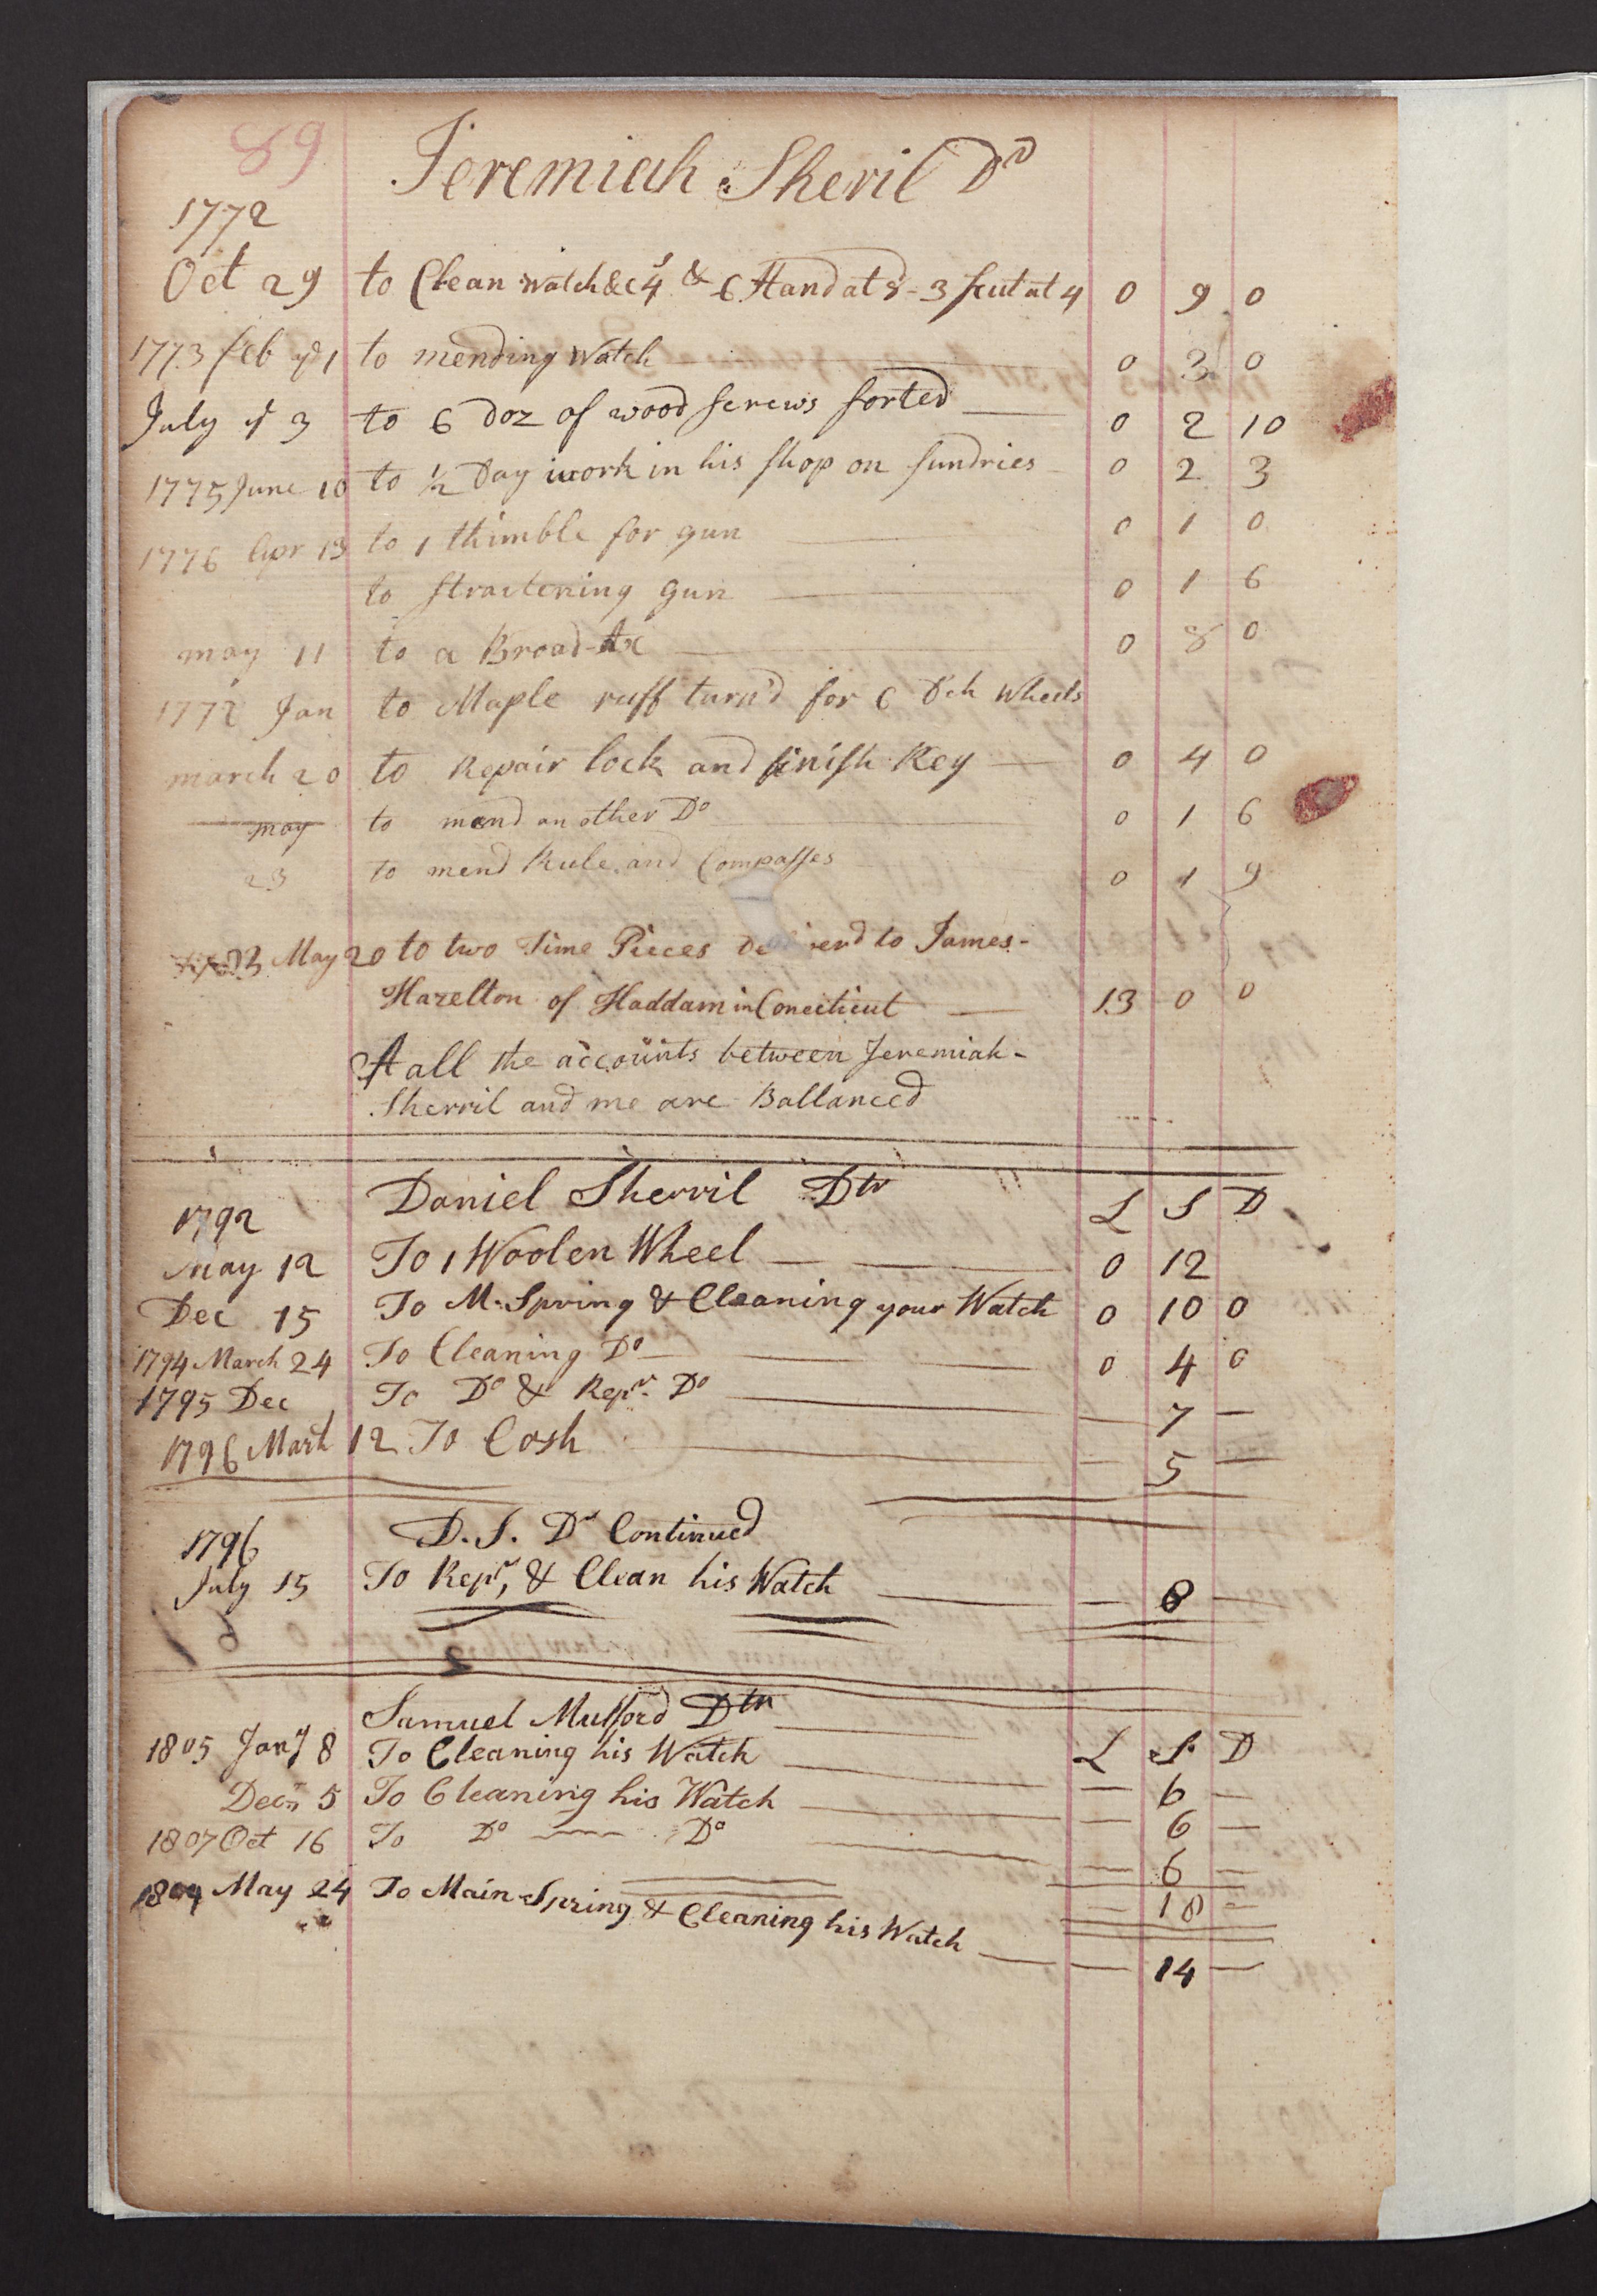 89
Jeremiah Sheril Dr
1772
Oct 29 to Clean watch &c 4s & 6 Hand at 8 - 3 at 4 0 9 0
1773 feb ye 1 to mending Watch 0 3 0
July ye 3 to 6 doz of wood screws sorted 0 2 10
1775 June 10 to ½ Day work in his shop on sundries 0 2 3
1776 Apr 13 to 1 thimble for gun 0 1 0
to straitening gun 0 1 6
may 11 to a Broad-Ax 0 8 0
1772 Jan to Maple ruff turn'd for 6 Wheels
march 20 to Repair lock and finish Key 0 4 0
may to mend another Do 0 1 6
23 to mend Rule and Compasses 0 1 9
May 20 to two Time Pieces to James-
Hazelton of Haddam in Conecticut 13 0 0
all the accounts between Jeremiah-
Sherril and me are Ballanced
Daniel Sherril Dtr L S D
1792
May 12 To 1 Woolen Wheel 0 12
Dec 15 To M. Spring & Cleaning your Watch 0 10 0
1794 March 24 To Cleaning Do 0 4 0
1795 Dec To Do & Repr. Do — 7 —
1796 March 12 To Cash — 5 —
D. S. Dr Continued
1796
July 15 To Repr, & Clean his Watch — 8 —
Samuel Mulford Dtr L S D
1805 Jany 8 To Cleaning his Watch — 6 —
Decr 5 To Cleaning his Watch — 6 —
1807 Oct 16 To Do — Do — 6 —
— 18 —
1809 May 24 To Main Spring & Cleaning his Watch — 14 —